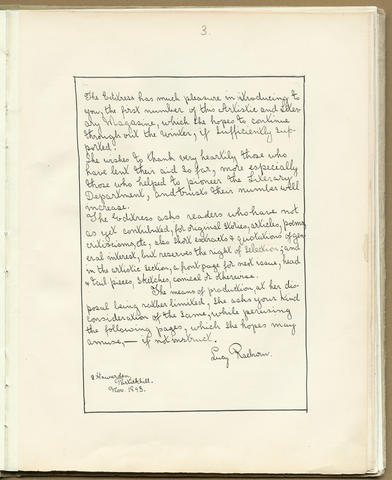 3.
The Editress has much pleasure in introducing to
you, the first number of this Artistic and Liter-
ary Magazine, which she hopes to continue
throughout the Winter, if sufficiently sup-
ported.
She wishes to thank very heartily those who
have lent their aid so far, more especially
those who helped to pioneer the Literary
Department, and trusts their number will
increase.
The Editress asks readers who have not
as yet contributed, for original stories, articles, poems,
criticisms, etc, also short extracts & quotations of gen-
eral interest, but reserves the right of selection; and
in the artistic section, a front page for next issue, head
& tail pieces, sketches, comical or otherwise.
The means of production at her dis-
posal being rather limited, she asks your kind
consideration of the same, while perusing
the following pages, which she hopes may
amuse, — if not instruct.
Lucy Raeburn.
Hawarden,
Nov. 1893.